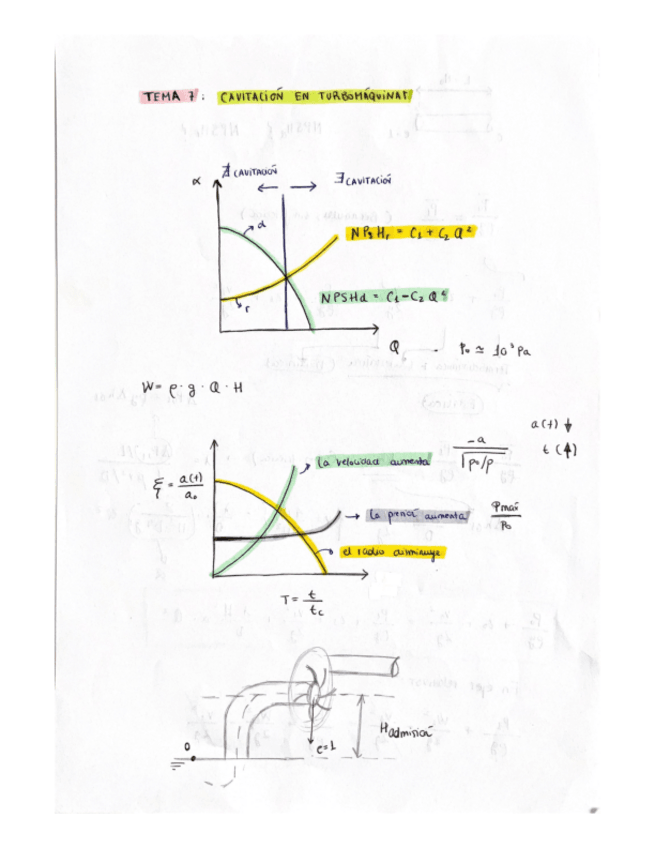 TEMA 7: CAVITACIÓN EN TURBOMÁQUINAS
∄ CAVITACIÓN
∃ CAVITACIÓN
α
d
NPSHr = C1 + C2 Q²
r
NPSHd = C1 - C2 Q²
Q
P₀ ≃ 10⁵ Pa
W = ρ · g · Q · H
a(t) ↓
t (↑)
la velocidad aumenta
-a / √p₀/ρ
ξ = a(t) / a₀
la presión aumenta
Pmax / P₀
el radio disminuye
T = t / tc
Hadmisión
0
e=1